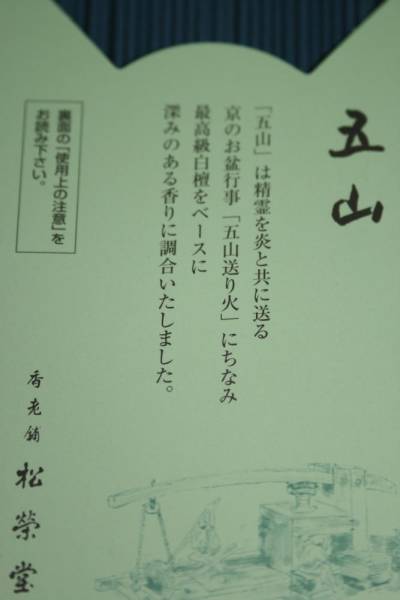 五山
「五山」は精霊を炎と共に送る
京のお盆行事「五山送り火」にちなみ
最高級白檀をベースに
深みのある香りに調合いたしました。
裏面の「使用上の注意」を
お読み下さい。
香老舗 松榮堂